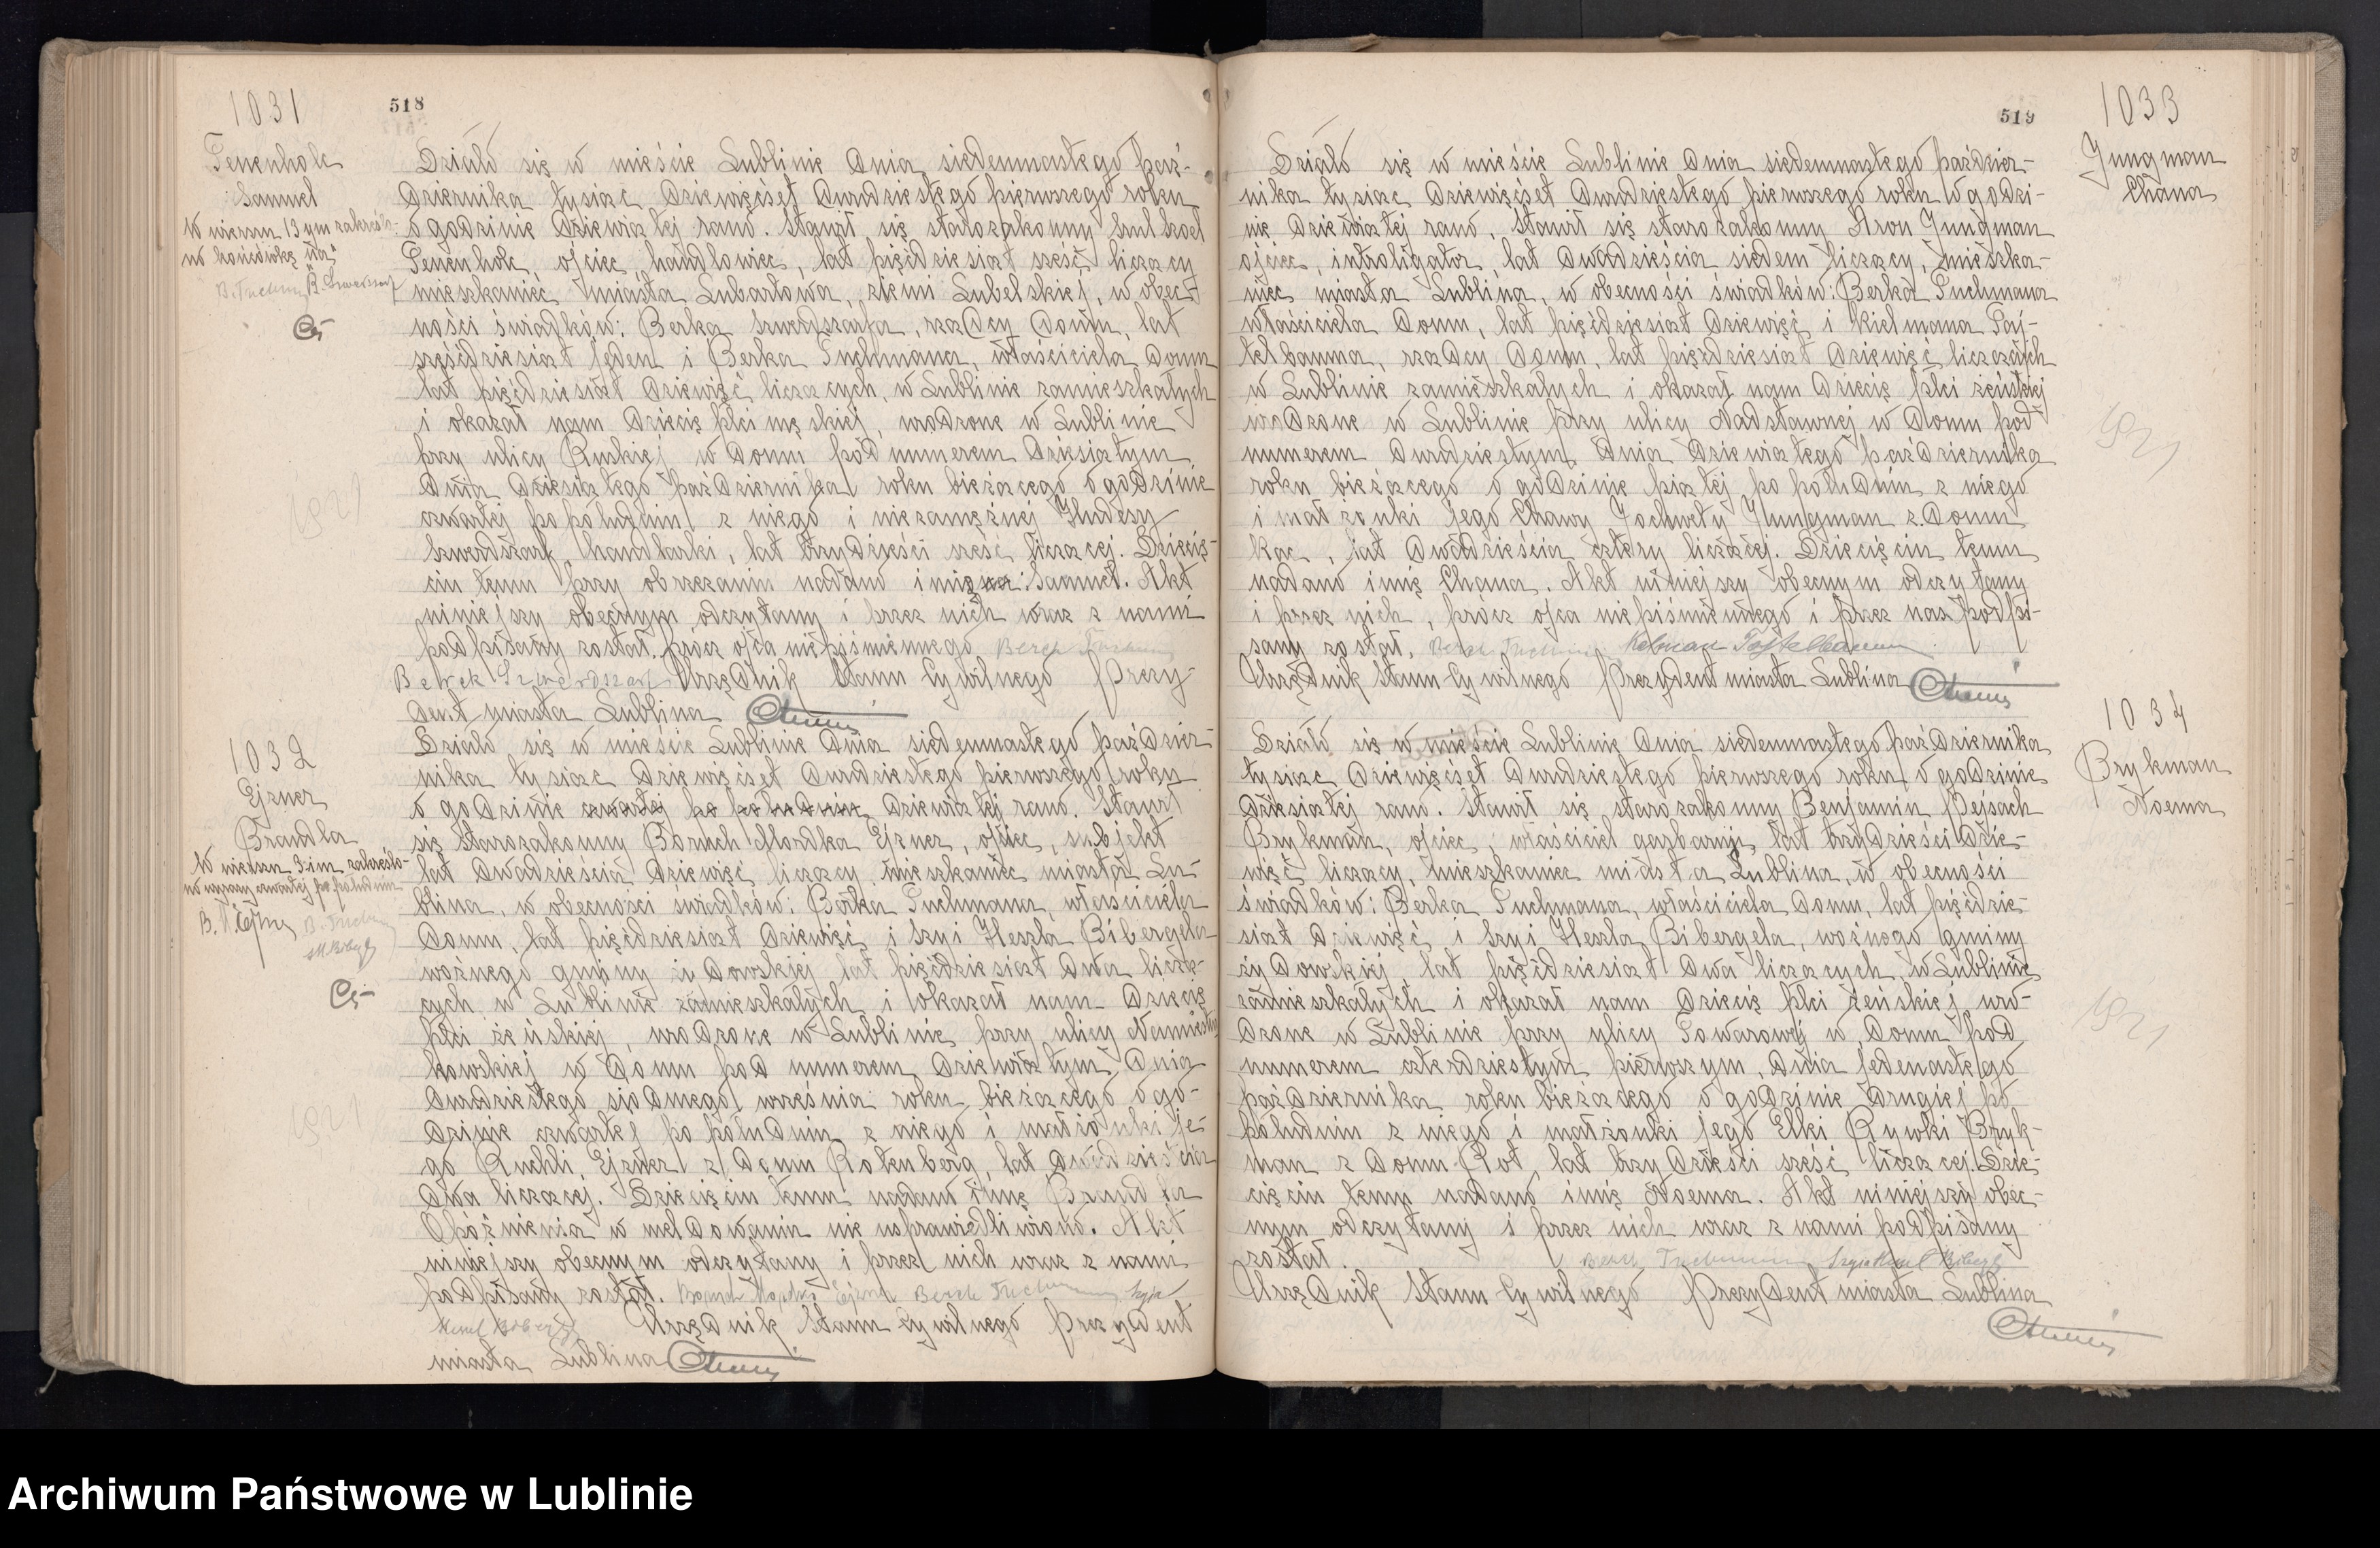 1031
518
Tenenholc
Samuel
W wierszu 13ym zakreślo-
no końcówkę „na”
B. Tuchman B. Szwerdszarf
Działo się w mieście Lublinie dnia siedemnastego paź-
dziernika tysiąc dziewięćset dwudziestego pierwszego roku
o godzinie dziewiątej rano. Stawił się starozakonny
Tenenholc, ojciec, handlowiec, lat pięćdziesiąt sześć liczący
mieszkaniec miasta Lubartowa, ziemi Lubelskiej, w obec-
ności świadków: Berka Szwerdszarfa, rządcy domu, lat
sześćdziesiąt jeden i Berka Tuchmana, właściciela domu
lat pięćdziesiąt dziewięć liczących, w Lublinie zamieszkałych
i okazał nam dziecię płci męskiej, urodzone w Lublinie
przy ulicy Ruskiej w domu pod numerem dziesiątym
dnia dziesiątego października roku bieżącego o godzinie
czwartej po południu z niego i niezamężnej Hudesy
Szwerdszarf, handlarki, lat trzydzieści sześć liczącej. Dziecię-
ciu temu przy obrzezaniu nadano imię na: Samuel. Akt
niniejszy obecnym odczytany i przez nich wraz z nami
podpisany został. prócz ojca niepiśmiennego Berek Tuchman
Berek Szwerdszarf Urzędnik Stanu Cywilnego Prezy-
dent miasta Lublina
1032
Ejzner
Brandla
W wierszu 3im zakreślo-
no wyrazy czwartej po południu
B. M. Ejzner B. Tuchman
Działo się w mieście Lublinie dnia siedemnastego paździer-
nika tysiąc dziewięćset dwudziestego pierwszego roku
o godzinie czwartej po południu dziewiątej rano. Stawił
się starozakonny Boruch Mordka Ejzner, ojciec, subjekt
lat dwadzieścia dziewięć liczący mieszkaniec miasta Lu-
blina, w obecności świadków: Berka Tuchmana, właściciela
domu, lat pięćdziesiąt dziewięć i Szyi Heszla Bibergela
woźnego gminy żydowskiej lat pięćdziesiąt dwa liczą-
cych w Lublinie zamieszkałych i okazał nam dziecię
płci żeńskiej, urodzone w Lublinie przy ulicy Namiestni-
kowskiej w domu pod numerem dziewiątym, dnia
dwudziestego siódmego września roku bieżącego o go-
dzinie czwartej po południu z niego i małżonki je-
go Ruchli Ejzner z domu Rotenberg, lat dwadzieścia
dwa liczącej. Dziecięciu temu nadano imię Brandla
Opóźnienia w meldowaniu nie usprawiedliwiono. Akt
niniejszy obecnym odczytany i przez nich wraz z nami
podpisany został. Boruch Mordka Ejzner Berek Tuchman Szyja
Heszel Bibergel Urzędnik Stanu Cywilnego Prezydent
miasta Lublina
519
1033
Jungman
Chana
Działo się w mieście Lublinie dnia siedemnastego paździer-
nika tysiąc dziewięćset dwudziestego pierwszego roku o godzi-
nie dziewiątej rano. Stawił się starozakonny Aron Jungman
ojciec, introligator, lat dwadzieścia siedem liczący, mieszka-
niec miasta Lublina, w obecności świadków: Berka Tuchmana
właściciela domu, lat pięćdziesiąt dziewięć i Kielmana Taj-
telbauma, rządcy domu, lat pięćdziesiąt dziewięć liczących
w Lublinie zamieszkałych i okazał nam dziecię płci żeńskiej
urodzone w Lublinie przy ulicy Nadstawnej w domu pod
numerem dwudziestym, dnia dziewiątego października
roku bieżącego o godzinie piątej po południu z niego
i małżonki jego Chawy Jochwety Jungman z domu
Kac, lat dwadzieścia cztery liczącej. Dziecięciu temu
nadano imię Chana. Akt niniejszy obecnym odczytany
i przez nich, prócz ojca niepiśmiennego i przez nas podpi-
sany został. Berek Tuchman Kelman Tajtelbaum
Urzędnik Stanu Cywilnego Prezydent miasta Lublina
1034
Brykman
Noema
Działo się w mieście Lublinie dnia siedemnastego października
tysiąc dziewięćset dwudziestego pierwszego roku, o godzinie
dziesiątej rano. Stawił się starozakonny Benjamin Pejsach
Brykman, ojciec, właściciel garbarni, lat trzydzieści dzie-
więć liczący, mieszkaniec miasta Lublina, w obecności
świadków: Berka Tuchmana, właściciela domu, lat pięćdzie-
siąt dziewięć i Szyi Heszla Bibergela, woźnego gminy
żydowskiej, lat pięćdziesiąt dwa liczących, w Lublinie
zamieszkałych i okazał nam dziecię płci żeńskiej uro-
dzone w Lublinie przy ulicy Towarowej w domu pod
numerem czterdziestym pierwszym, dnia jedenastego
października roku bieżącego o godzinie drugiej po
południu z niego i małżonki jego Elki Rywki Bryk-
man z domu Rot, lat trzydzieści sześć liczącej. Dzie-
cięciu temu nadano imię Noema. Akt niniejszy obec-
nym odczytany i przez nich wraz z nami podpisany
został. Berek Tuchman Szyja Heszel Bibergel
Urzędnik Stanu Cywilnego Prezydent miasta Lublina
Archiwum Państwowe w Lublinie